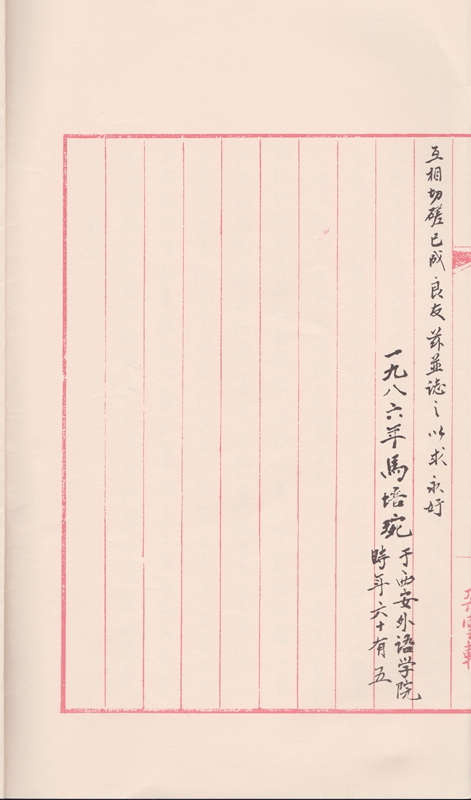 互相切磋已成良友茲並誌之以求永好
一九八六年馬培琬
于西安外语学院
時年六十有五